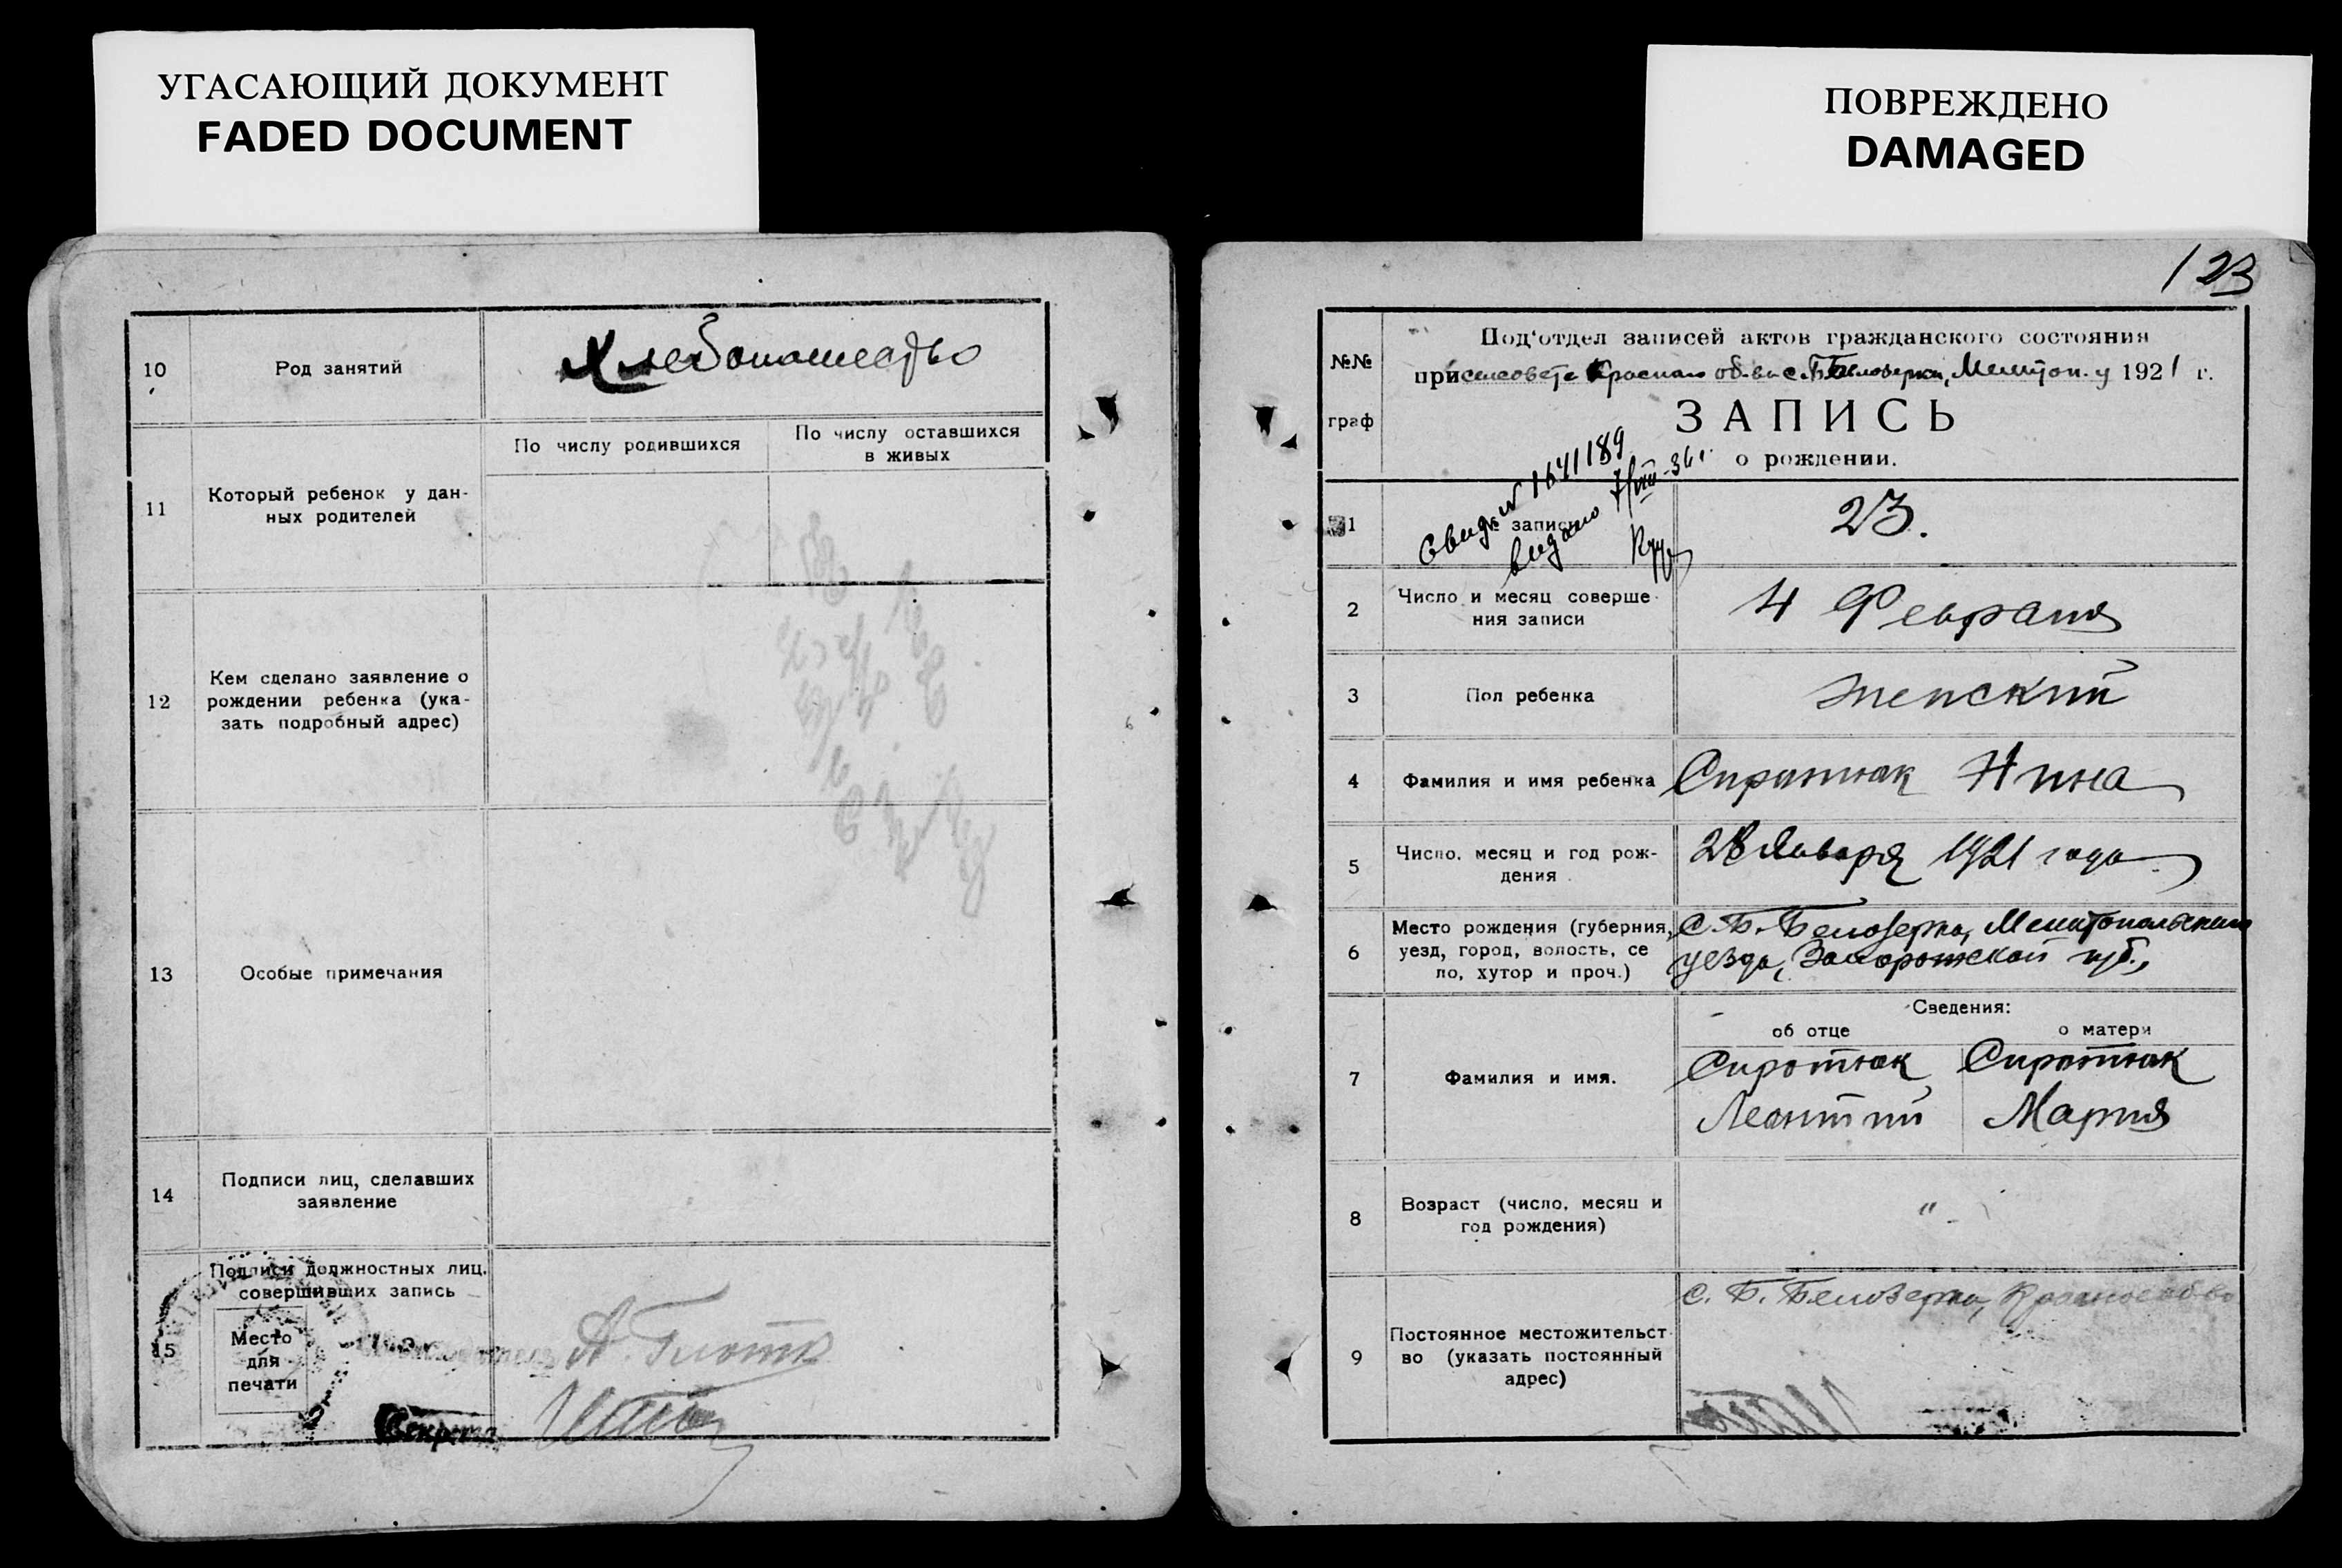 УГАСАЮЩИЙ ДОКУМЕНТ
FADED DOCUMENT
10
Род занятий
Хлебопашество
11
Который ребенок у дан-
ных родителей
По числу родившихся
По числу оставшихся
в живых
12
Кем сделано заявление о
рождении ребенка (ука-
зать подробный адрес)
13
Особые примечания
14
Подписи лиц, сделавших
заявление
15
Подписи должностных лиц,
совершивших запись
Место
для
печати
Секрета
ПОВРЕЖДЕНО
DAMAGED
123
№№
граф
Под'отдел записей актов гражданского состояния
при сельсовете с. Б Белозерки, Мелитоп. у 1921 г.
ЗАПИСЬ
о рождении.
Свид. № 1641189
видано
1
№ записи
23.
2
Число и месяц соверше-
ния записи
4 Февраля
3
Пол ребенка
женский
4
Фамилия и имя ребенка
Сиротюк Нина
5
Число, месяц и год рож-
дения
28 Января 1921 года
6
Место рождения (губерния,
уезд, город, волость, се
ло, хутор и проч.)
С. Б. Белозерка, Мелитопольского
уезда, Запорожской губ.,
Сведения:
об отце
о матери
7
Фамилия и имя.
Сиротюк
Леонтий
Сиротюк
Мария
8
Возраст (число, месяц и
год рождения)
" -
9
Постоянное местожительст-
во (указать постоянный
адрес)
с. Б. Белозерка,